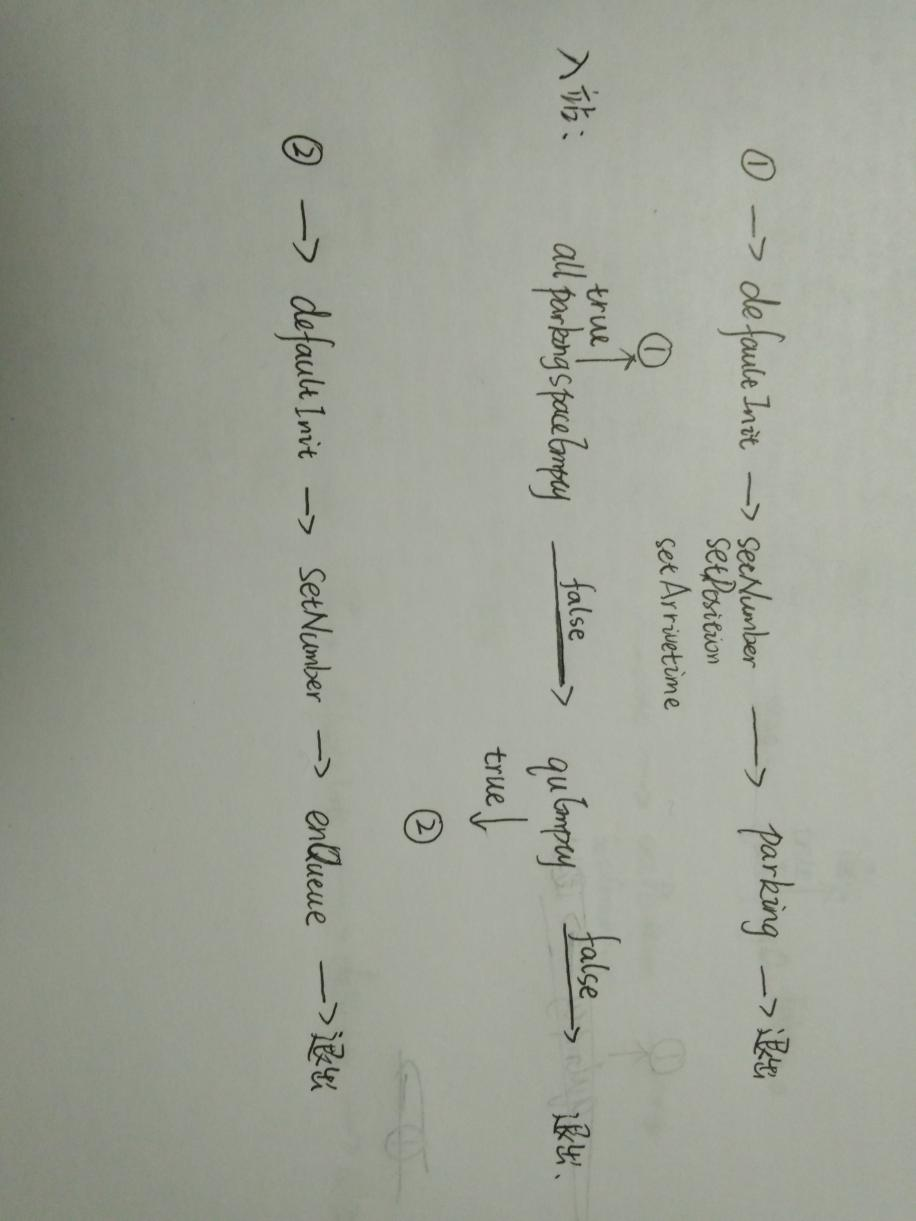 ① → defaultInit → setNumber → parking → 退出
setPosition
setArrivetime
①
true ↑
入站: allparkingspaceEmpty false → quEmpty false → 退出.
true ↓
②
② → defaultInit → SetNumber → enQueue → 退出